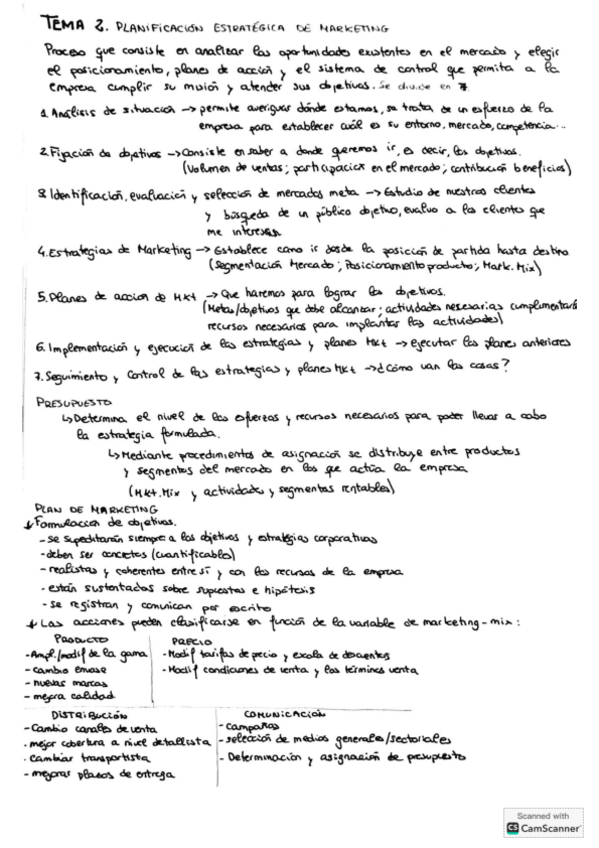 TEMA 2. PLANIFICACIÓN ESTRATÉGICA DE MARKETING
Proceso que consiste en analizar las oportunidades existentes en el mercado y elegir
el posicionamiento, planes de acción y el sistema de control que permita a la
empresa cumplir su misión y atender sus objetivos. Se divide en 7
1. Análisis de situación → permite averiguar dónde estamos, se trata de un esfuerzo de la
empresa para establecer cuál es su entorno, mercado, competencia...
2. Fijación de objetivos → Consiste en saber a donde queremos ir, es decir, los objetivos.
(Volumen de ventas; participación en el mercado; contribución beneficios)
3. Identificación, evaluación y selección de mercados meta → Estudio de nuestros clientes
y búsqueda de un público objetivo, evaluo a los clientes que
me interesan
4. Estrategias de Marketing → Establece como ir desde la posición de partida hasta destino
(Segmentación Mercado; Posicionamiento producto; Mark. Mix)
5. Planes de accion de Mkt → Que haremos para lograr los objetivos.
(Metas/objetivos que debe alcanzar; actividades necesarias cumplimentarlo
recursos necesarios para implantar las actividades)
6. Implementación y ejecución de las estrategias y planes Mkt → ejecutar los planes anteriores
7. Seguimiento y Control de las estrategias y planes Mkt → ¿Cómo van las cosas?
PRESUPUESTO
↳ Determina el nivel de los esfuerzos y recursos necesarios para poder llevar a cabo
la estrategia formulada.
↳ Mediante procedimientos de asignación se distribuye entre productos
y segmentos del mercado en los que actúa la empresa
(Mkt.Mix y actividades y segmentos rentables)
PLAN DE MARKETING
↓ Formulación de objetivos.
- se supeditarán siempre a los objetivos y estrategias corporativas
- deben ser concretos (cuantificables)
- realistas y coherentes entre sí y con los recursos de la empresa
- están sustentados sobre supuestos e hipótesis
- se registran y comunican por escrito
↓ Las acciones pueden clasificarse en función de la variable de marketing-mix:
PRODUCTO
- Ampl./modif de la gama
- cambio envase
- nuevas marcas
- mejora calidad
PRECIO
- Modif tarifas de precio y escala de descuentos
- Modif condiciones de venta y los términos venta
DISTRIBUCIÓN
- Cambio canales de venta
- mejor cobertura a nivel detallista
- cambiar transportista
- mejorar plazos de entrega
COMUNICACIÓN
- Campañas
- selección de medios generales/sectoriales
- Determinación y asignación de presupuesto
Scanned with
CS CamScanner